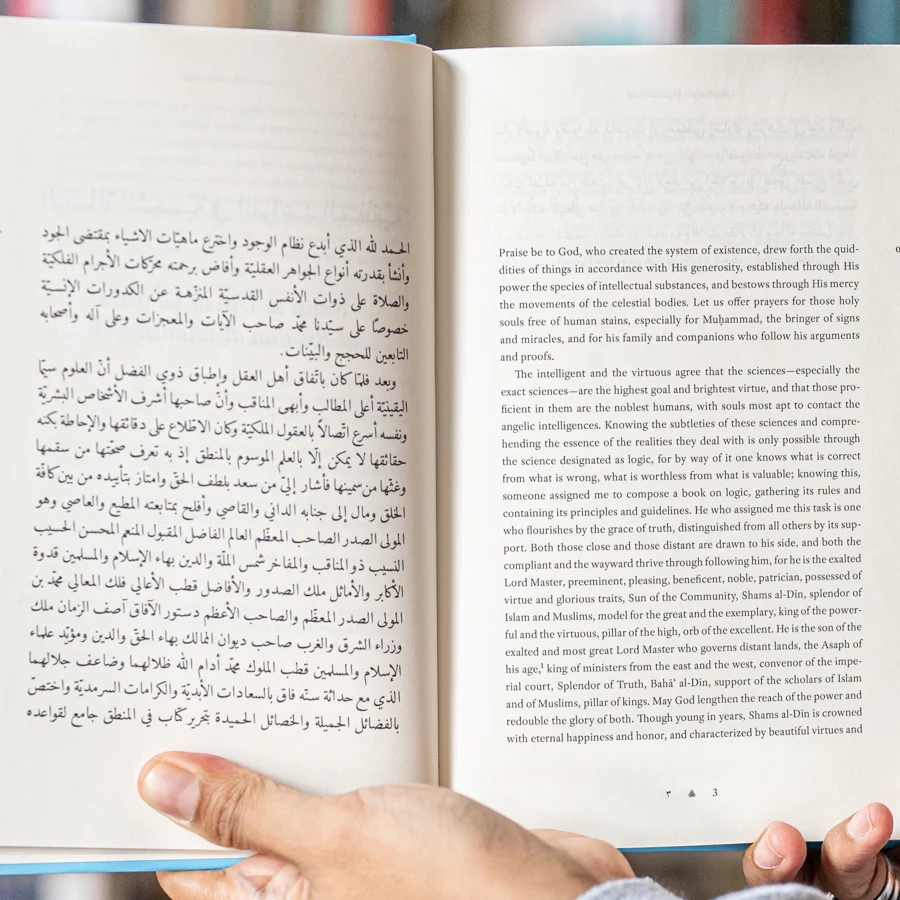 الحمد لله الذي أبدع نظام الوجود واخترع ماهيّات الاشياء بمقتضى الجود
وأنشأ بقدرته أنواع الجواهر العقليّة وأفاض برحمته محرّكات الأجرام الفلكيّة
والصلاة على ذوات الأنفس القدسيّة المنزّهة عن الكدورات الإنسيّة
خصوصًا على سيّدنا محمّد صاحب الآيات والمعجزات وعلى آله وأصحابه
التابعين للحجج والبيّنات.
وبعد فلمّا كان باتّفاق أهل العقل وإطباق ذوي الفضل أنّ العلوم سيمّا
اليقينيّة أعلى المطالب وأبهى المناقب وأنّ صاحبها أشرف الأشخاص البشريّة
ونفسه أسرع اتّصالاً بالعقول الملكيّة وكان الاطّلاع على دقائقها والإحاطة بكنه
حقائقها لا يمكن إلّا بالعلم الموسوم بالمنطق إذ به تعرف صحّتها من سقمها
وغثّها من سمينها فأشار إليّ من سعد بلطف الحقّ وامتاز بتأييده من بين كافّة
الخلق ومال إلى جنابه الداني والقاصي وأفلح بمتابعته المطيع والعاصي وهو
المولى الصدر الصاحب المعظّم العالم الفاضل المقبول المنعم المحسن الحسيب
النسيب ذو المناقب والمفاخر شمس الملّة والدين بهاء الإسلام والمسلمين قدوة
الأكابر والأماثل ملك الصدور والأفاضل قطب الأعالي فلك المعالي محمّد بن
المولى الصدر المعظّم والصاحب الأعظم دستور الآفاق آصف الزمان ملك
وزراء الشرق والغرب صاحب ديوان الممالك بهاء الحقّ والدين ومؤيّد علماء
الإسلام والمسلمين قطب الملوك محمّد أدام الله ظلالهما وضاعف جلالهما
الذي مع حداثة سنّه فاق بالسعادات الأبديّة والكرامات السرمديّة واختصّ
بالفضائل الجميلة والخصائل الحميدة بتحرير كتاب في المنطق جامع لقواعده
Praise be to God, who created the system of existence, drew forth the quid-
dities of things in accordance with His generosity, established through His
power the species of intellectual substances, and bestows through His mercy
the movements of the celestial bodies. Let us offer prayers for those holy
souls free of human stains, especially for Muḥammad, the bringer of signs
and miracles, and for his family and companions who follow his arguments
and proofs.
The intelligent and the virtuous agree that the sciences—especially the
exact sciences—are the highest goal and brightest virtue, and that those pro-
ficient in them are the noblest humans, with souls most apt to contact the
angelic intelligences. Knowing the subtleties of these sciences and compre-
hending the essence of the realities they deal with is only possible through
the science designated as logic, for by way of it one knows what is correct
from what is wrong, what is worthless from what is valuable; knowing this,
someone assigned me to compose a book on logic, gathering its rules and
containing its principles and guidelines. He who assigned me this task is one
who flourishes by the grace of truth, distinguished from all others by its sup-
port. Both those close and those distant are drawn to his side, and both the
compliant and the wayward thrive through following him, for he is the exalted
Lord Master, preeminent, pleasing, beneficent, noble, patrician, possessed of
virtue and glorious traits, Sun of the Community, Shams al-Dīn, splendor of
Islam and Muslims, model for the great and the exemplary, king of the power-
ful and the virtuous, pillar of the high, orb of the excellent. He is the son of the
exalted and most great Lord Master who governs distant lands, the Asaph of
his age,¹ king of ministers from the east and the west, convenor of the impe-
rial court, Splendor of Truth, Bahāʾ al-Dīn, support of the scholars of Islam
and of Muslims, pillar of kings. May God lengthen the reach of the power and
redouble the glory of both. Though young in years, Shams al-Dīn is crowned
with eternal happiness and honor, and characterized by beautiful virtues and
٣ 3